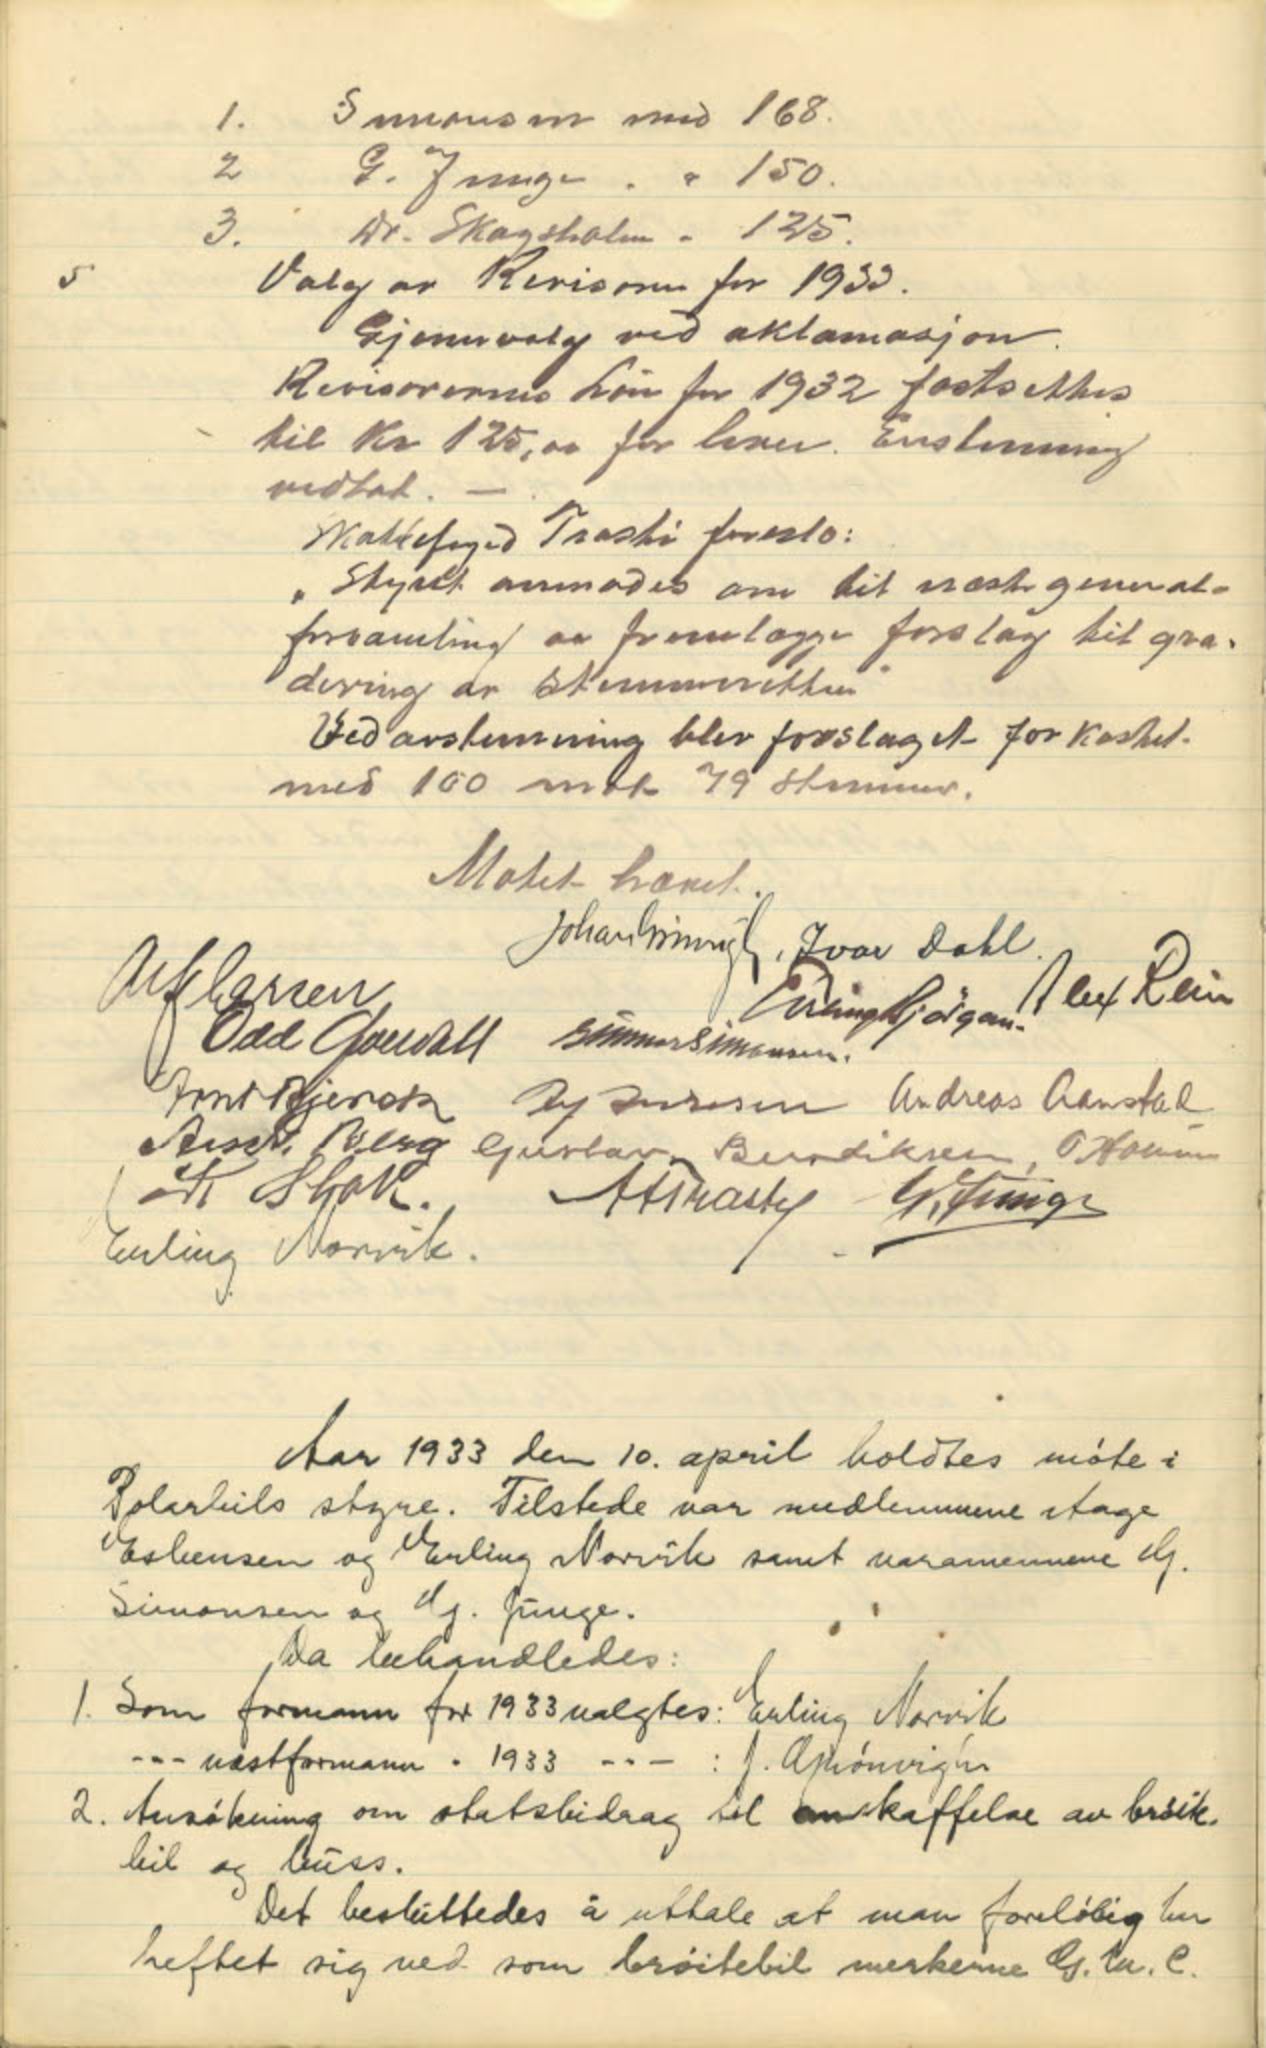 1. Simonsen med 168.
2 G. Junge . " 150.
3. Dr. Skagsholm " 125.
5 Valg av Revisorer for 1933.
Gjenvalg ved aklamasjon.
Revisorernes Lön for 1932 fastsettes
til Kr 125,00 for hver. Enstemmig
vedtat. —
Skattefoged Trasti foreslo:
„Styret anmodes om til næste general-
forsamling aa fremlægge forslag til gra-
dering av Stemmeretten"
Ved avstemning blev forslaget forkastet
med 100 mot 79 stemmer.
Møtet hævet.
Johan Grönvigh, Ivar Dahl.
Ulf Larsen Erling Bjørgan Alex Rein
Odd Gjervall Simonsen.
Arnt Bjerck Andreas Aanstad
Berg Gustav Bendiksen,
A Trasti G. Junge
Erling Norvik.
Aar 1933 den 10. april holdtes møte i
Polarbils styre. Tilstede var medlemmene Aage
Esbensen og Erling Norvik samt varamennene Hj.
Simonsen og Hj. Junge.
Da behandledes:
1. Som formann for 1933 valgtes: Erling Norvik
--- næstformann " 1933 --- : J. Grönvigh
2. Ansökning om statsbidrag til anskaffelse av bröite-
bil og buss.
Det besluttedes å uttale at man foreløbig har
heftet sig ved som brøitebil merkerne G. M. C.